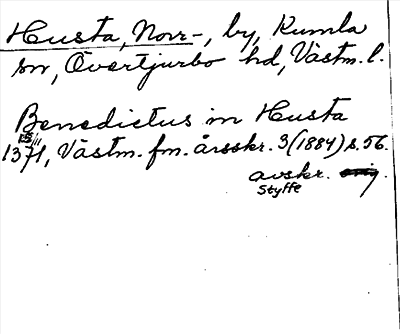 Husta, Norr-, by, Kumla
sn, Övertjurbo hd, Västm. l.
Benedictus in Husta
1371, Västm. fm. årsskr. 3 (1884) s. 56.
avskr. orig.
Styffe